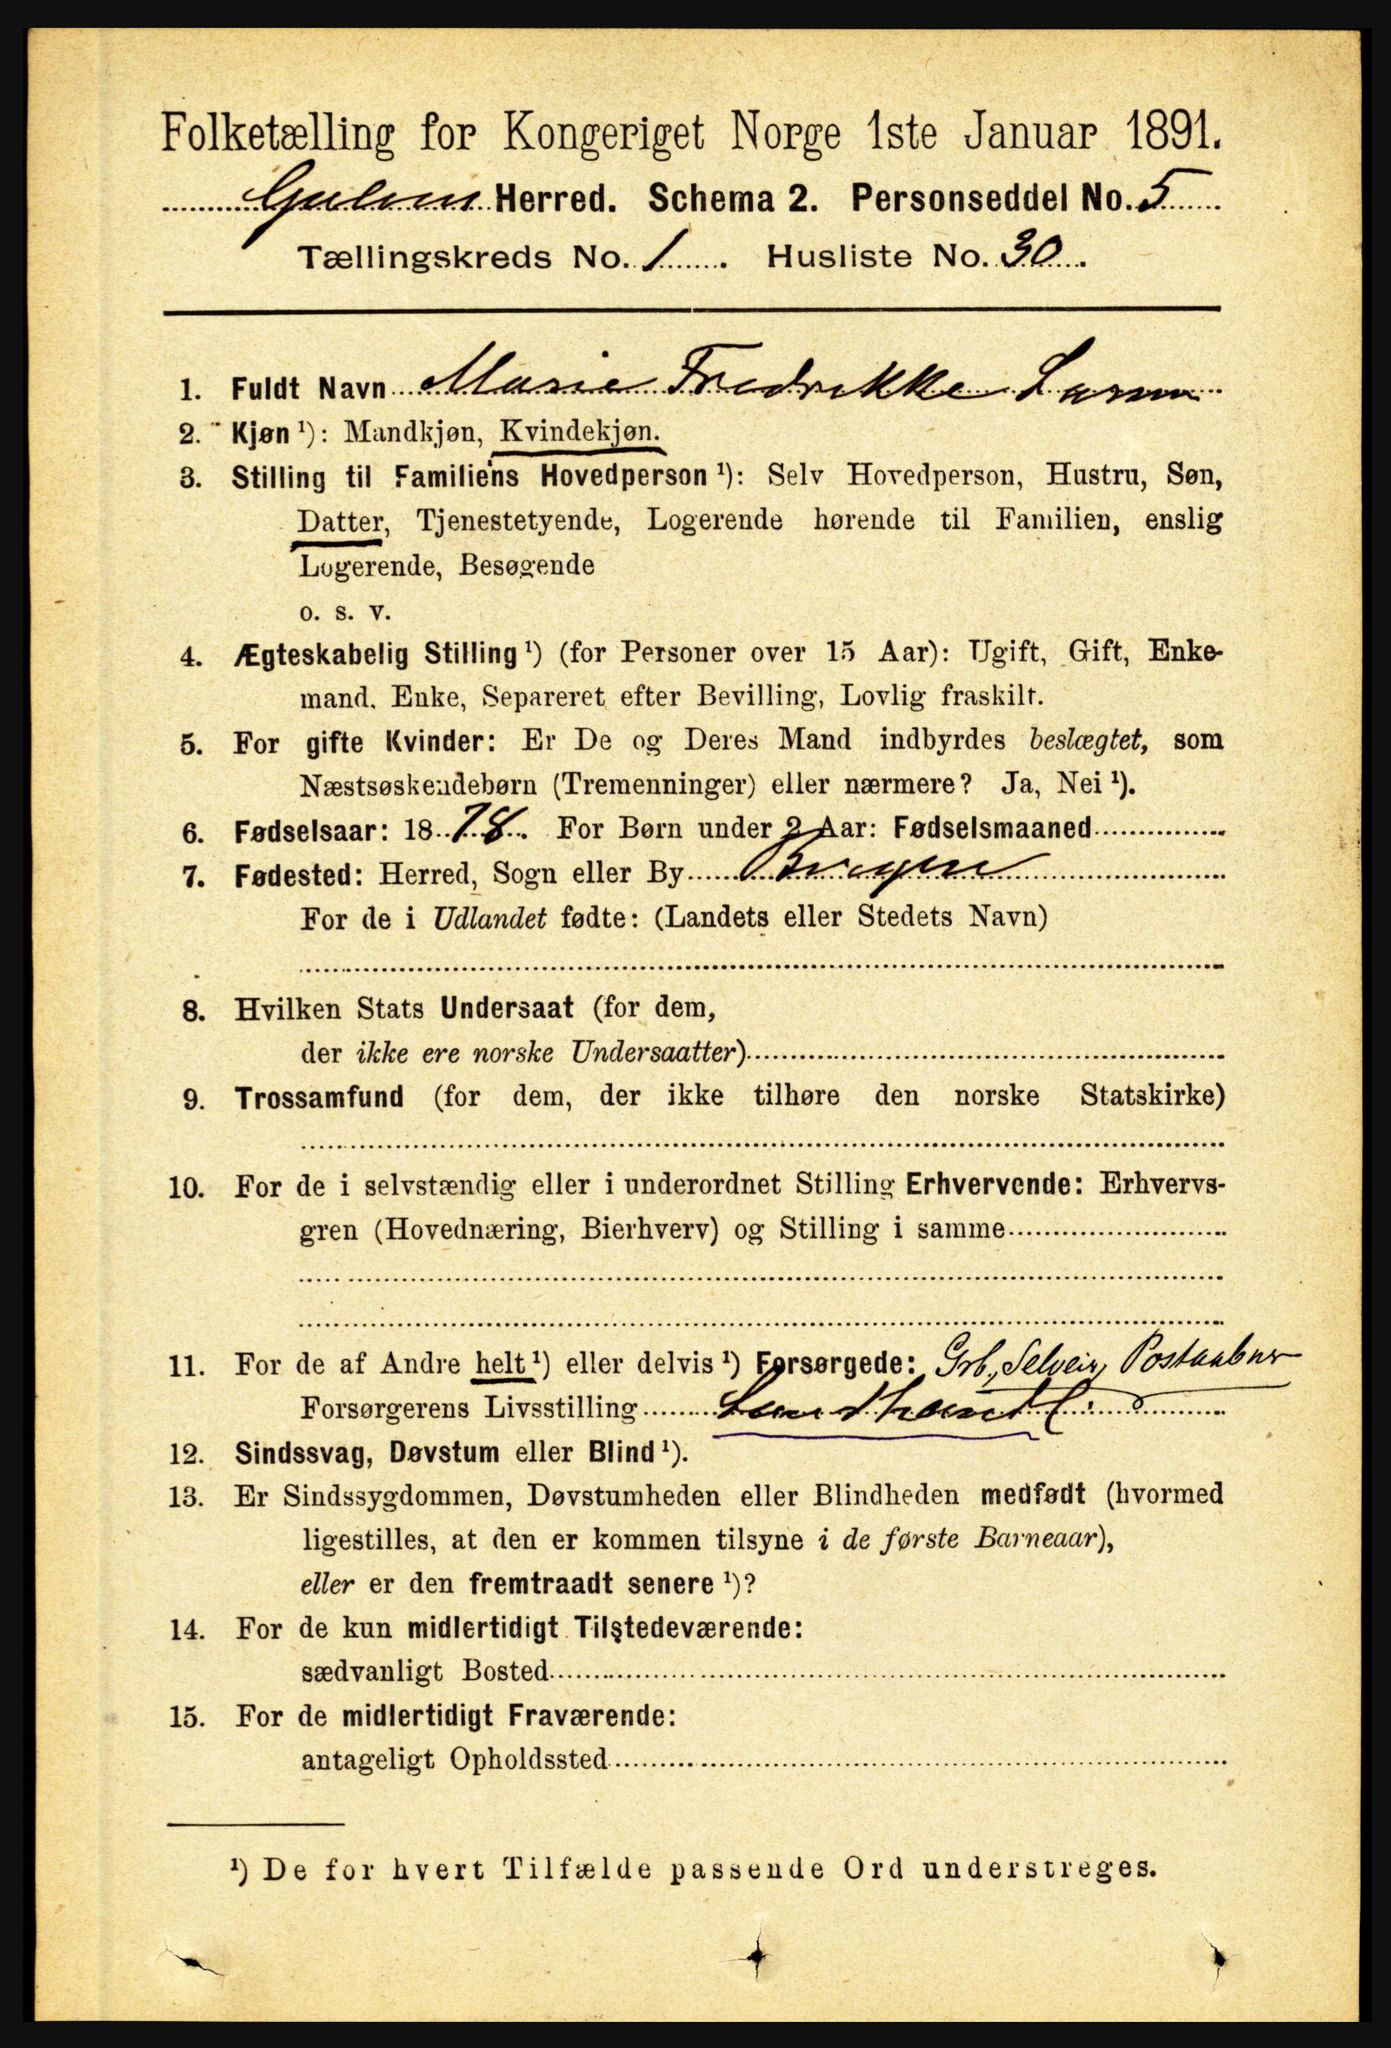 Folketælling for Kongeriget Norge 1ste Januar 1891.
Gulens Herred. Schema 2. Personseddel No. 5
Tællingskreds No. 1. Husliste No. 30.
1. Fuldt Navn Marie Fredrikke Larsen
2. Kjøn ¹): Mandkjøn, Kvindekjøn.
3. Stilling til Familiens Hovedperson ¹): Selv Hovedperson, Hustru, Søn,
Datter, Tjenestetyende, Logerende hørende til Familien, enslig
Logerende, Besøgende
o. s. v.
4. Ægteskabelig Stilling ¹) (for Personer over 15 Aar): Ugift, Gift, Enke-
mand, Enke, Separeret efter Bevilling, Lovlig fraskilt.
5. For gifte Kvinder: Er De og Deres Mand indbyrdes beslægtet, som
Næstsøskendebørn (Tremenninger) eller nærmere? Ja, Nei ¹).
6. Fødselsaar: 1878. For Børn under 2 Aar: Fødselsmaaned
7. Fødested: Herred, Sogn eller By Bergen
For de i Udlandet fødte: (Landets eller Stedets Navn)
8. Hvilken Stats Undersaat (for dem,
der ikke ere norske Undersaatter)
9. Trossamfund (for dem, der ikke tilhøre den norske Statskirke)
10. For de i selvstændig eller i underordnet Stilling Erhvervende: Erhvervs-
gren (Hovednæring, Bierhverv) og Stilling i samme
11. For de af Andre helt ¹) eller delvis ¹) Forsørgede: Grb, Selveir, Postaabner
Forsørgerens Livsstilling Landhandl.
12. Sindssvag, Døvstum eller Blind ¹).
13. Er Sindssygdommen, Døvstumheden eller Blindheden medfødt (hvormed
ligestilles, at den er kommen tilsyne i de første Barneaar),
eller er den fremtraadt senere ¹)?
14. For de kun midlertidigt Tilstedeværende:
sædvanligt Bosted
15. For de midlertidigt Fraværende:
antageligt Opholdssted
¹) De for hvert Tilfælde passende Ord understreges.